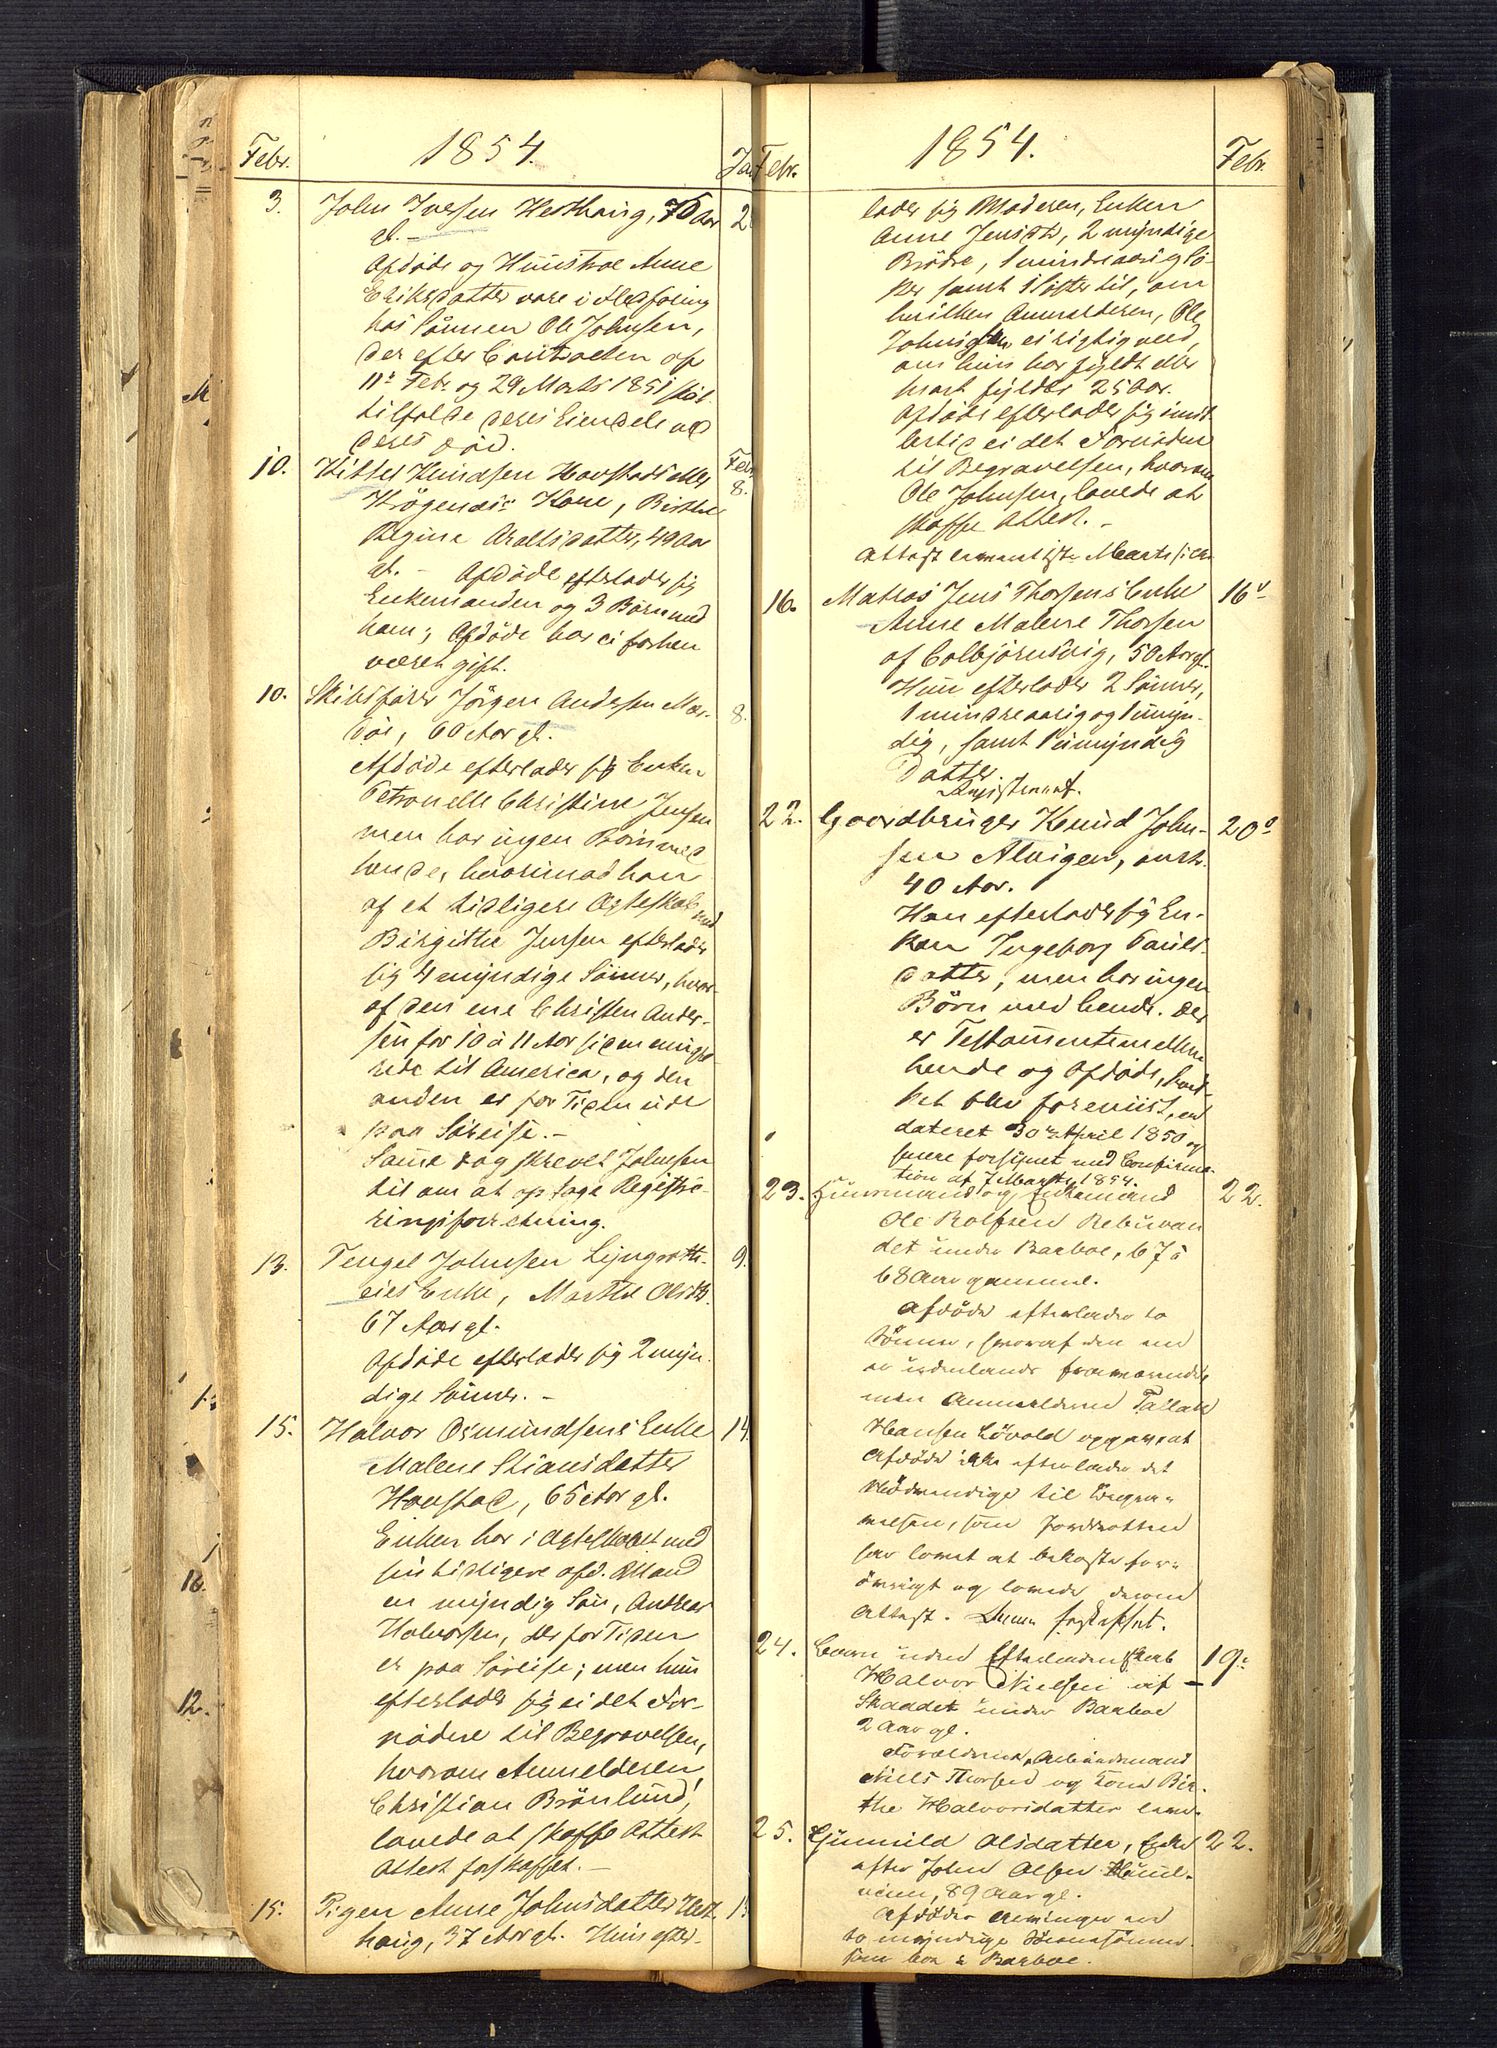 Febr. 1854. Ja
3. John Iversen Hesthaug, 76 Aar 2
gl. —
Afdøde og Huustroe Anne
Eriksdatter vare i Forsørging
hos Sønnen Ole Johnsen,
der efter Contracten af
11te Febr og 29 Marts 1851 skal
tilfalde deres Eiendele ved
deres Død.
10. Kittel Knudsen Hovstads eller Febr
Krøgenæs Kone, Birthe 8.
Regine Araltsdatter, 49 Aar
gl. — Afdøde efterlader sig
Enkemanden og 3 Børn med
ham; Afdøde har ei forhen
været gift.
10. Skibsfører Jørgen Andersen Mær- 8.
døe, 60 Aar gl.
Afdøde efterlader sig Enken
Petronelle Christine Jensen
men har ingen Børn med
hende, hvorimod han
af et tidligere Ægteskab med
Birgitte Jensen efterlader
sig 4 myndige Sønner, hvor-
af den ene Christen Ander-
sen for 10 à 11 Aar siden emigre-
rede til America, og den
anden er for Tiden ude
paa Søreise. —
Samme Dag skrevet Johnsen
til om at optage Registre-
ringsforretning.
13. Tengel Johnsen Lyngroth- 9.
eies Enke, Marthe Olsdtr.
67 Aar gl.
Afdøde efterlader sig 2 myn-
dige Sønner. —
15. Halvor Osmundsens Enke 14.
Malene Stiansdatter
Hovstad, 65 Aar gl.
Enken har i Ægteskabet med
sin tidligere afd. Mand
en myndig Søn, Andreas
Halvorsen, der for Tiden
er paa Søreise; men hun
efterlader sig ei det For-
nødne til Begravelsen,
hvorom Anmelderen
Christian Brønlund,
lovede at skaffe Attest
Attest forskaffet. —
15. Pigen Anne Johnsdatter Hest- 13
haug, 37 Aar gl. Hun efter-
Febr. 1854. Febr.
lader sig Moderen, Enken
Anne Jensdtr, 2 myndige
Brødre, 1 mindreaarig
samt 1 Søster til, om
hvilken Anmelderen, Ole
Johnsen, ei rigtig veed,
om hun har fyldt eller
snart fylder 25 Aar.
Afdøde efterlader sig imid-
lertid ei det Fornødne
til Begravelsen, hvorom
Ole Johnsen, lovede at
skaffe Attest. —
Attest Marts
16. Matros Jens Thorsens Enke 16
Anne Malene Thorsen
af Colbjørnsvig, 50 Aar gl.
Hun efterlader 2 Sønner,
1 mindreaarig og 1 umyn-
dig, samt 1 umyndig
Datter.
22. Gaardbruger Knud John- 20
sen Alvigen, omtr.
40 Aar.
Han efterlader sig En-
ken Ingeborg Pauls-
datter, men har ingen
Børn med hende. Der
er Testament imellem
hende og Afdøde, hvil-
ket blev foreviist, er
dateret 30te April 1850 og
senere forsynet med Confirma-
tion af 7 Marts 1854.
23. Huusmand og Enkemand 22.
Ole Rolfsen Rebuvan
det under Barboe, 67 à
68 Aar gammel.
Afdøde efterlader to
Sønner, hvoraf den ene
er udenlands fraværende
men Anmelderen Tallak
Hansen Løvold opgav, at
Afdøde ikke efterlader det
Nødvendige til Begra-
velsen, som Jordrotten
har lovet at bekoste for-
øvrigt og lovede derom
Attest. Denne forskaffet.
24. Barn uden Efterladenskab 19.
Halvor Nielsen af —
Skaadet under Barboe
2 Aar gl.
Forældrene, Arbeidsmand
Niels Thorsen og Kone Bir-
the Halvorsdatter leve.
25. Gunnild Olsdatter, Enke 22.
efter John Olsen
89 Aar gl.
Afdødes Arvinger ere
to myndige Sønnesønner
som boe i Barboe.